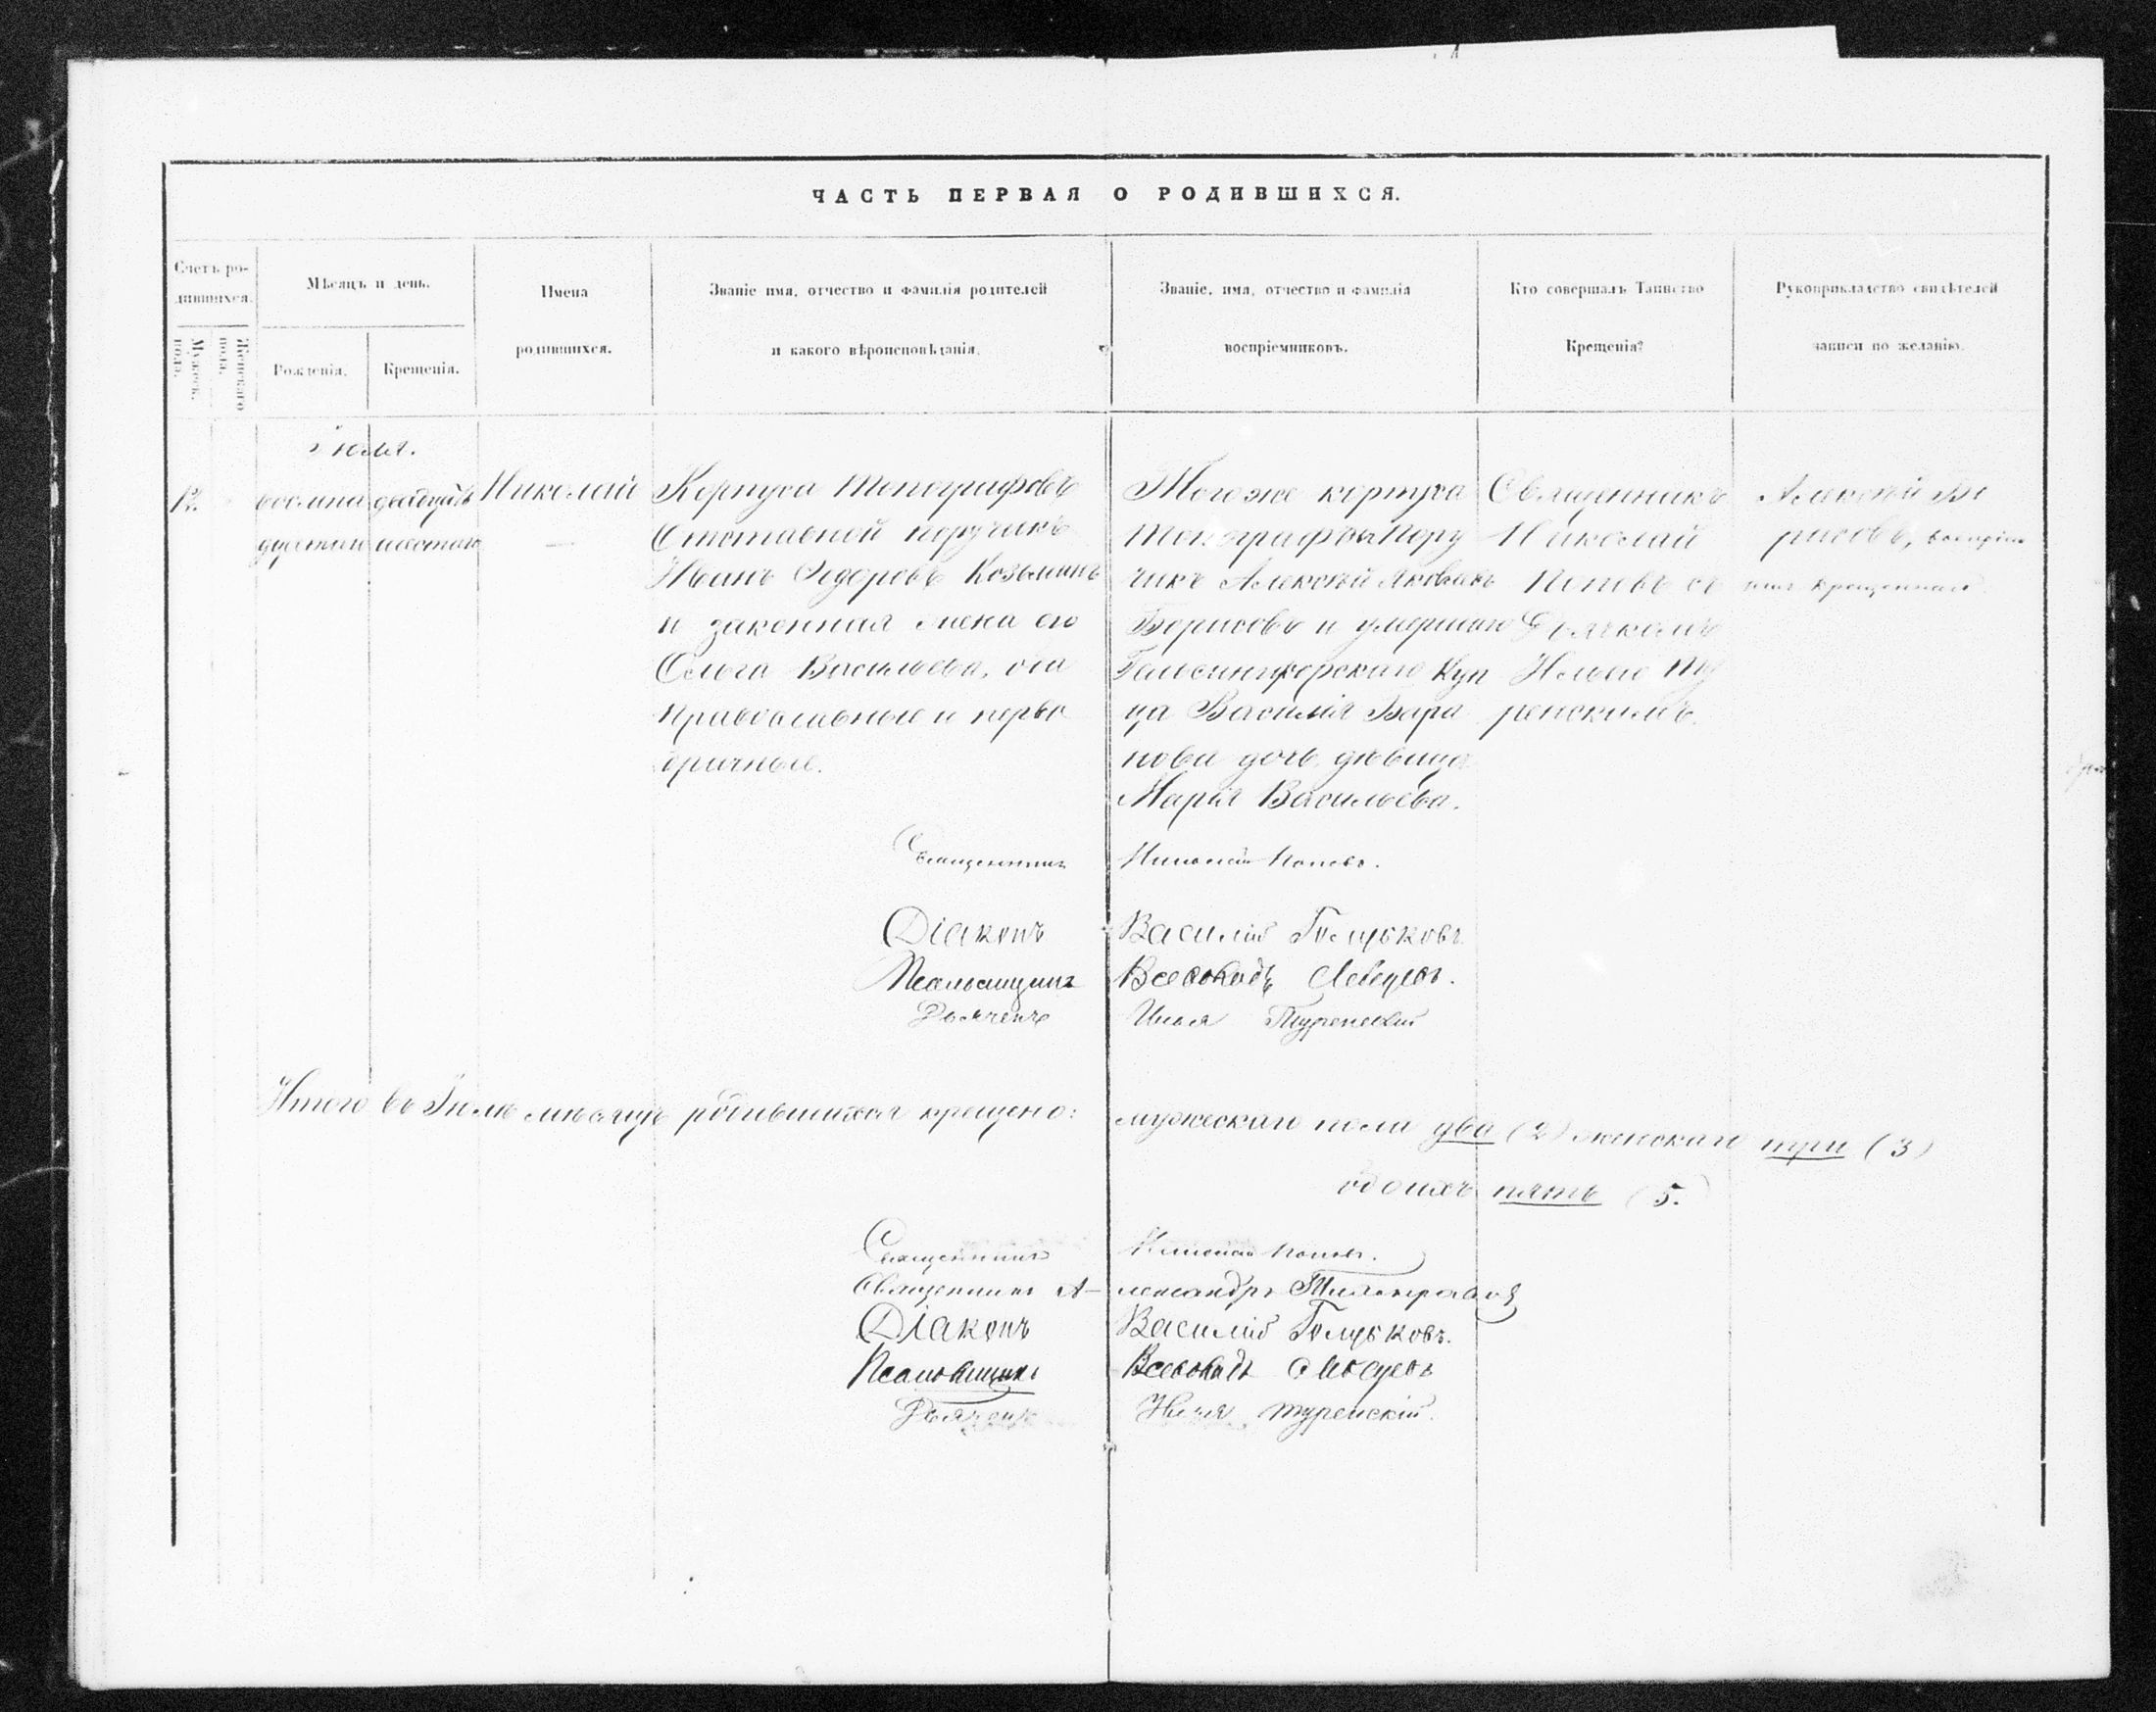 ЧАСТЬ ПЕРВАЯ О РОДИВШИХСЯ.
Счетъ ро-
дившихся.
Мужеск. пола.
Женскаго пола.
Мѣсяцъ и день.
Рожденія.
Крещенія.
Имена
родившихся.
Званіе имя, отчество и фамилія родителей
и какого вѣроисповѣданія.
Званіе, имя, отчество и фамилія
воспріемниковъ.
Кто совершалъ Таинство
Крещенія?
Рукоприкладство свидѣтелей
записи по желанію.
Іюля.
12.
восмна
дцатаго
двадцать
шестаго
Николай
Корпуса Топографовъ
Отставной поручикъ
Иванъ Ѳедоровъ Козьминъ
и законная жена его
Ольга Васильева, оба
православные и перво
брачные.
Тогоже корпуса
Топографовъ Пору
чикъ Алексѣй Яковлевъ
Борисовъ и умершаго
Гельсингфорскаго Куп
ца Василія Бара
нова дочь дѣвица
Марія Васильева.
Священникъ
Николай
Поповъ съ
Дьячкомъ
Ильею Ту
ренскимъ.
Алексѣй Бо
рисовъ,
Священникъ Николай Поповъ.
Діаконъ Василій Голубковъ.
Псаломщикъ Всеволодъ
Дьячекъ Илья Туренскій
Итого въ Іюлѣ мѣсяцѣ родившихся крещено: мужескаго пола два (2) женскаго три (3)
обоихъ пять (5.)
Священникъ Николай Поповъ.
Священникъ Александръ
Діаконъ Василій Голубковъ.
Псаломщикъ Всеволодъ
Дьячекъ Илья Туренскій.